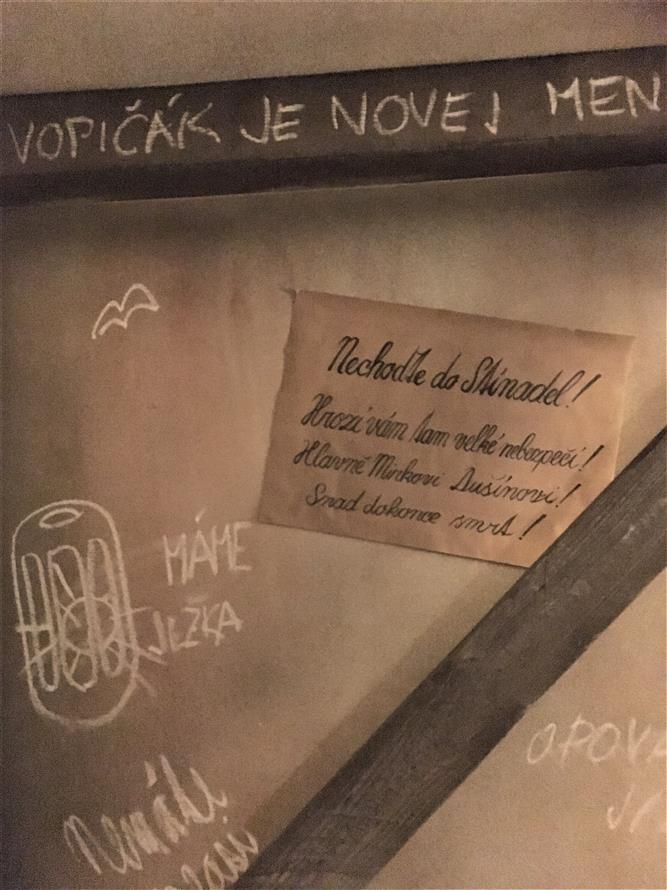 VOPIČÁK JE NOVEJ MEN
Nechoďte do Stínadel!
Hrozí vám tam velké nebezpečí!
Hlavně Mirkovi Dušínovi!
Snad dokonce smrt!
MÁME
JEŽKA
OPOVA